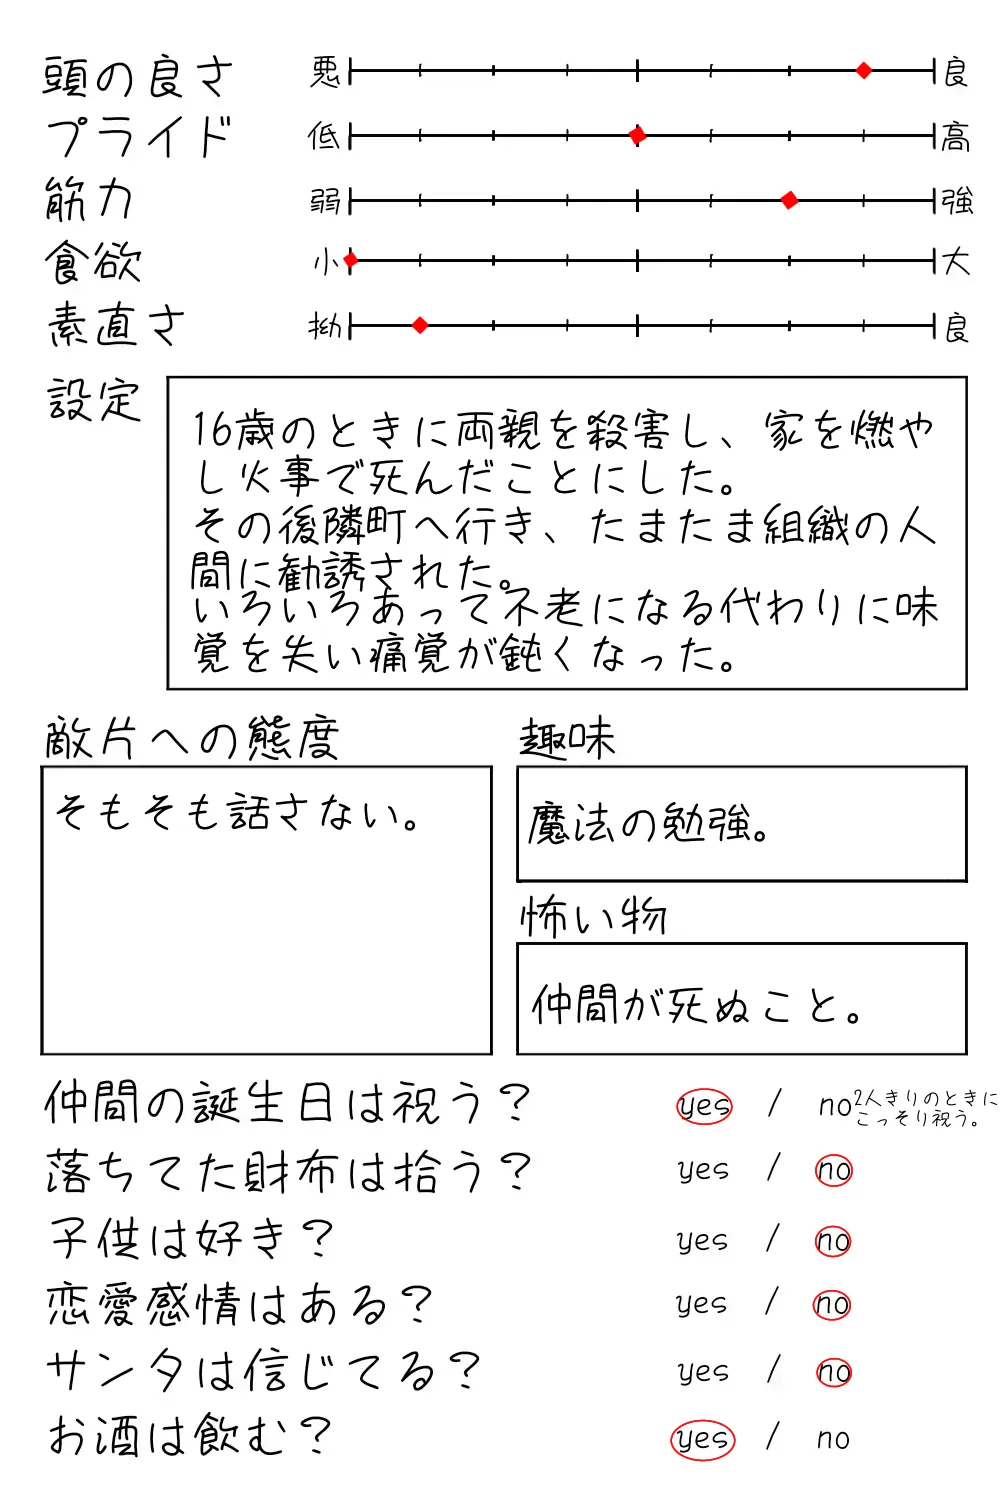 頭の良さ 悪 良
プライド 低 高
筋力 弱 強
食欲 小 大
素直さ 拗 良
設定
16歳のときに両親を殺害し、家を燃や
し火事で死んだことにした。
その後隣町へ行き、たまたま組織の人
間に勧誘された。
いろいろあって不老になる代わりに味
覚を失い痛覚が鈍くなった。
敵片への態度
そもそも話さない。
趣味
魔法の勉強。
怖い物
仲間が死ぬこと。
仲間の誕生日は祝う? yes / no 2人きりのときに
こっそり祝う。
落ちてた財布は拾う? yes / no
子供は好き? yes / no
恋愛感情はある? yes / no
サンタは信じてる? yes / no
お酒は飲む? yes / no